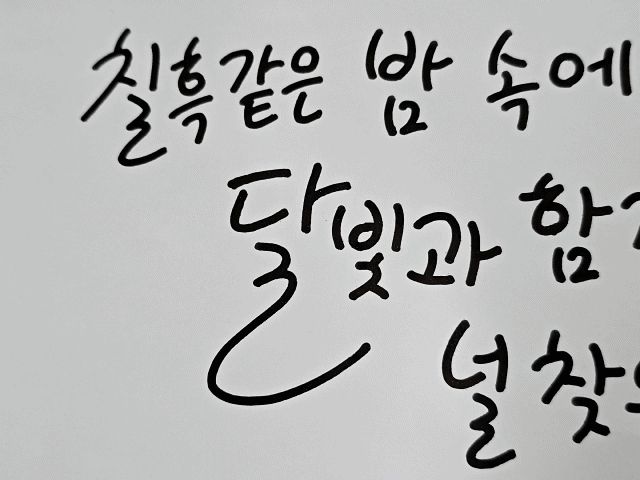 칠흑같은 밤 속에
달빛과 함
널 찾